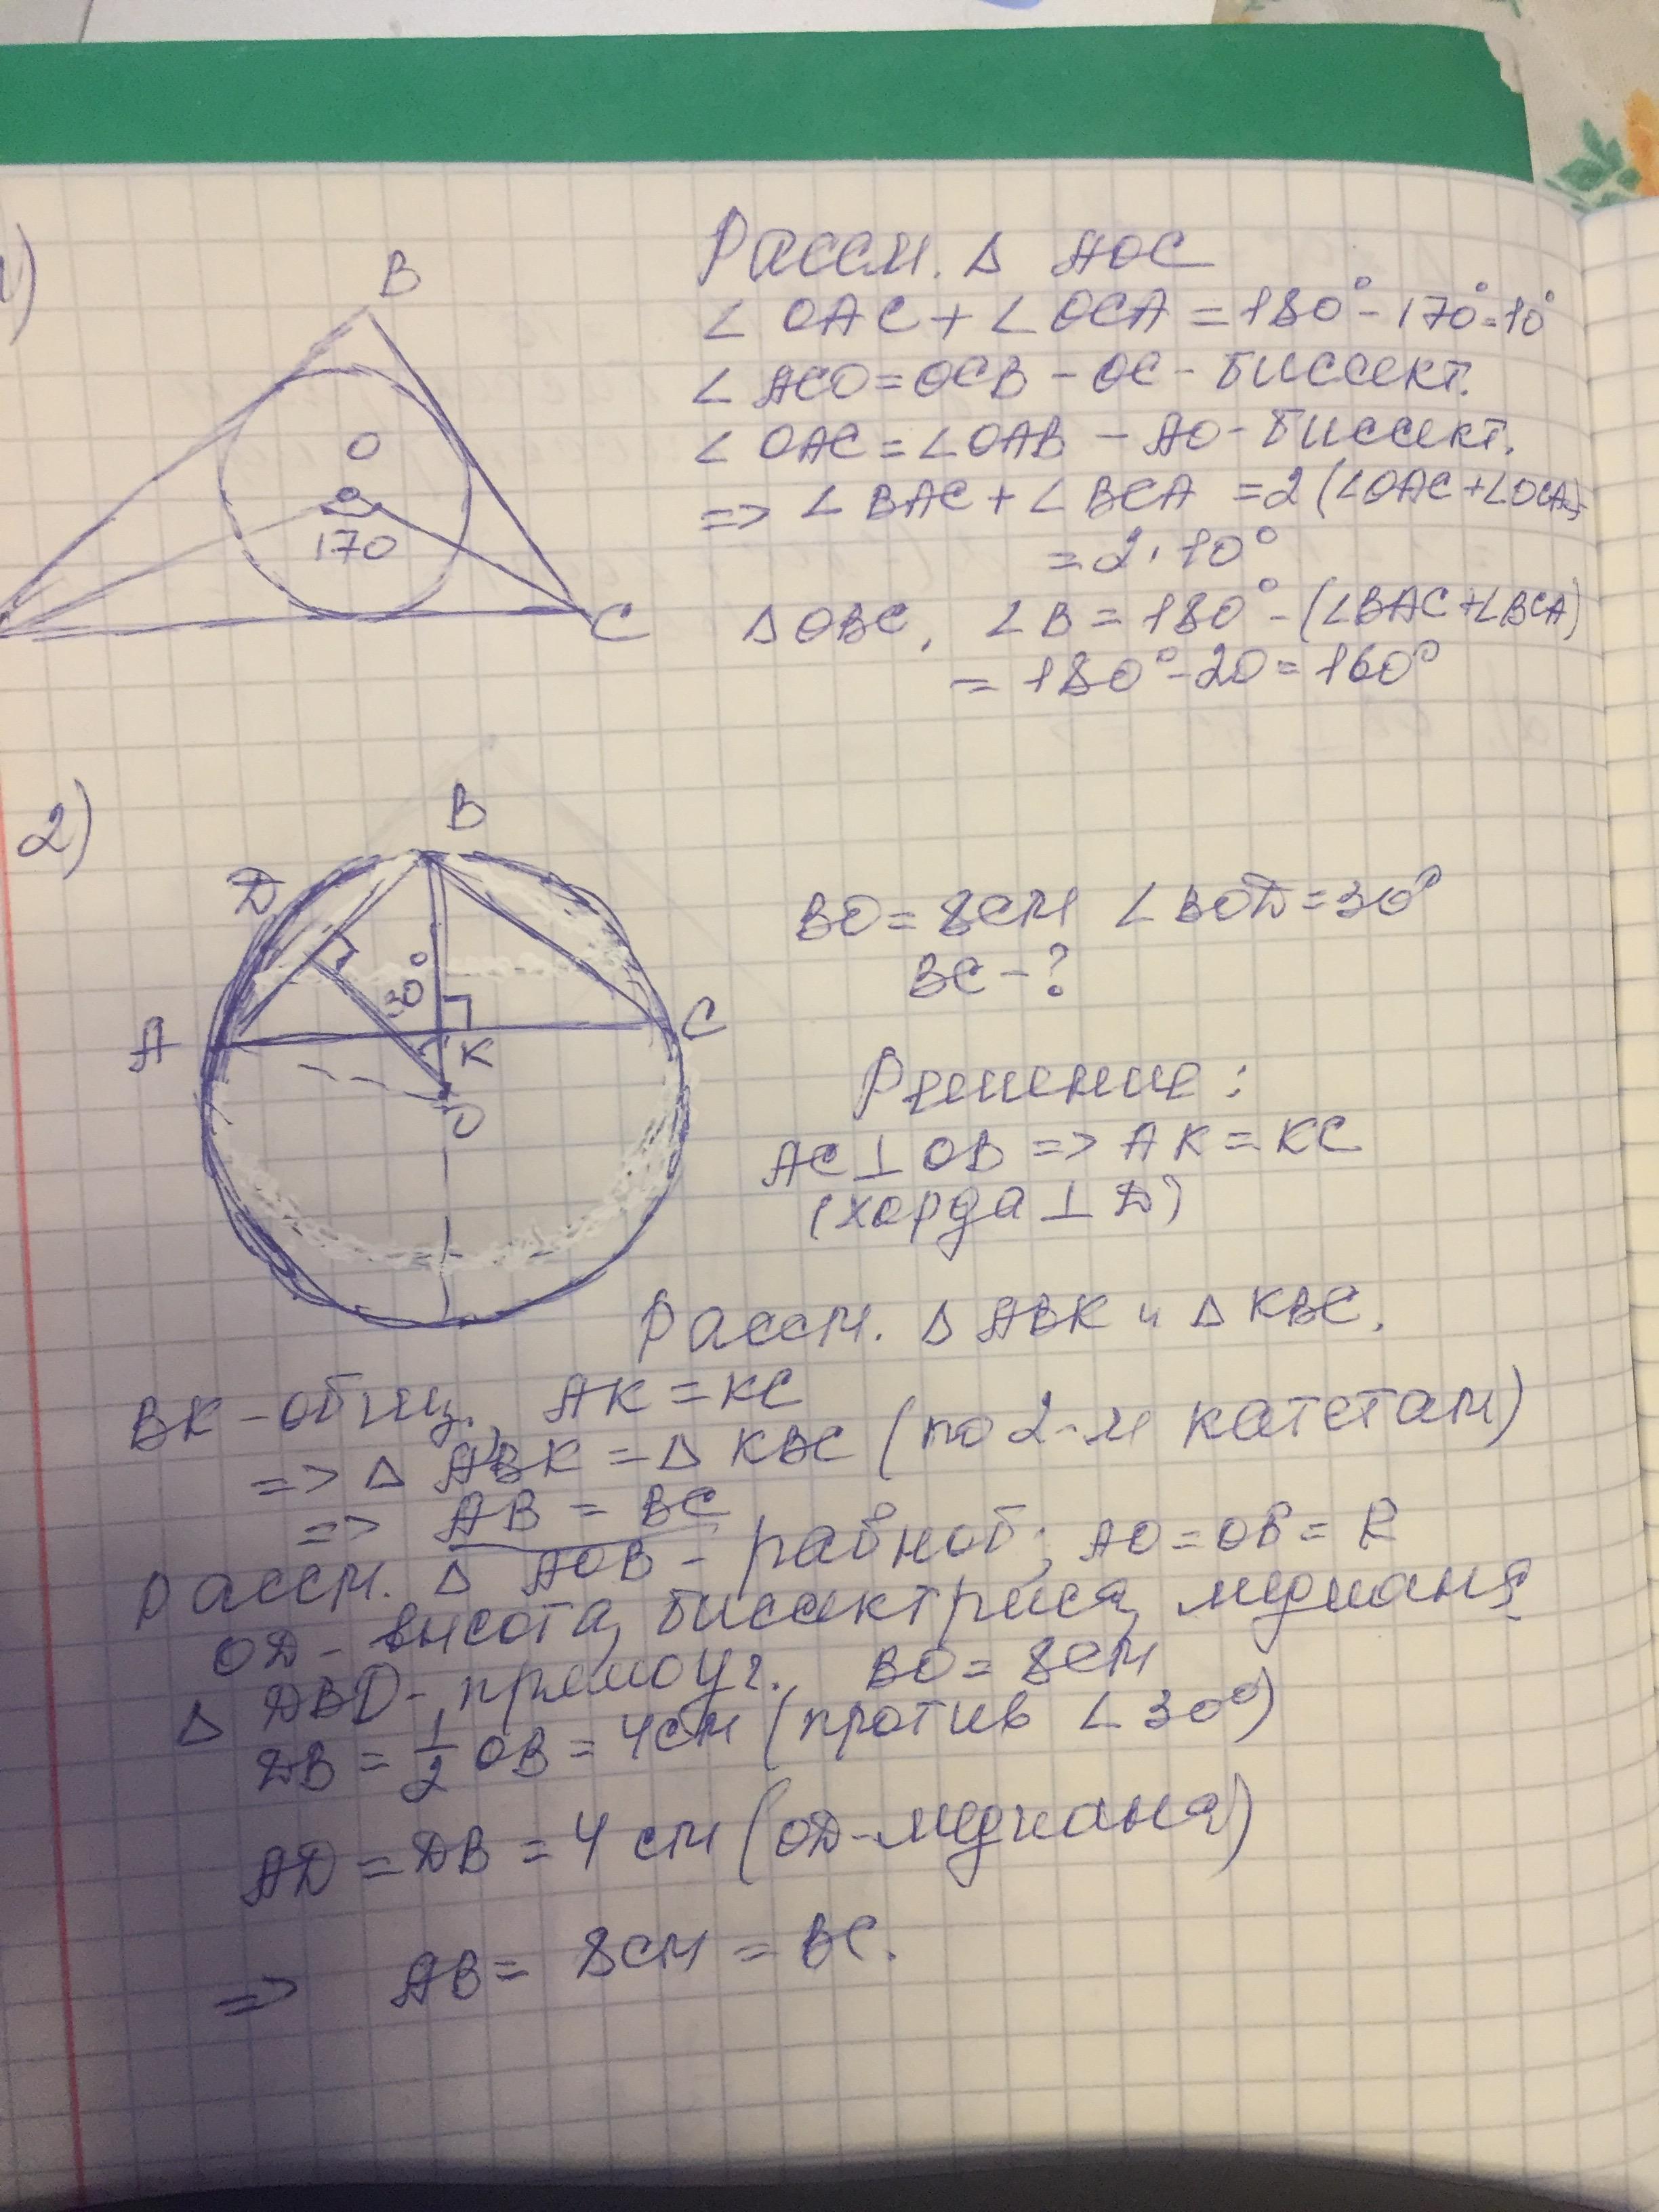 1)
B
O
170
C
Рассм. Δ AOC
∠ OAC + ∠ OCA = 180° - 170° = 10°
∠ ACO = OCB - OC - биссект.
∠ OAC = ∠OAB - AO - биссект.
=> ∠ BAC + ∠ BCA = 2 (∠OAC + ∠OCA) =
= 2 · 10°
Δ OBC, ∠ B = 180° - (∠BAC + ∠BCA)
= 180° - 20 = 160°
2)
B
D
30°
A
K
C
O
BO = 8 см ∠ BOD = 30°
BC - ?
Решение :
AC ⊥ OB => AK = KC
(хорда ⊥ D)
Рассм. Δ ABK и Δ KBC.
BK - общ., AK = KC
=> Δ ABK = Δ KBC (по 2-м катетам)
=> AB = BC
Рассм. Δ AOB - равноб; AO = OB = R
OD - высота, биссектриса, медиана
Δ DBD - прямоуг. BO = 8 см
DB = 1/2 OB = 4 см (против ∠ 30°)
AD = DB = 4 см (OD - медиана)
=> AB = 8 см = BC.